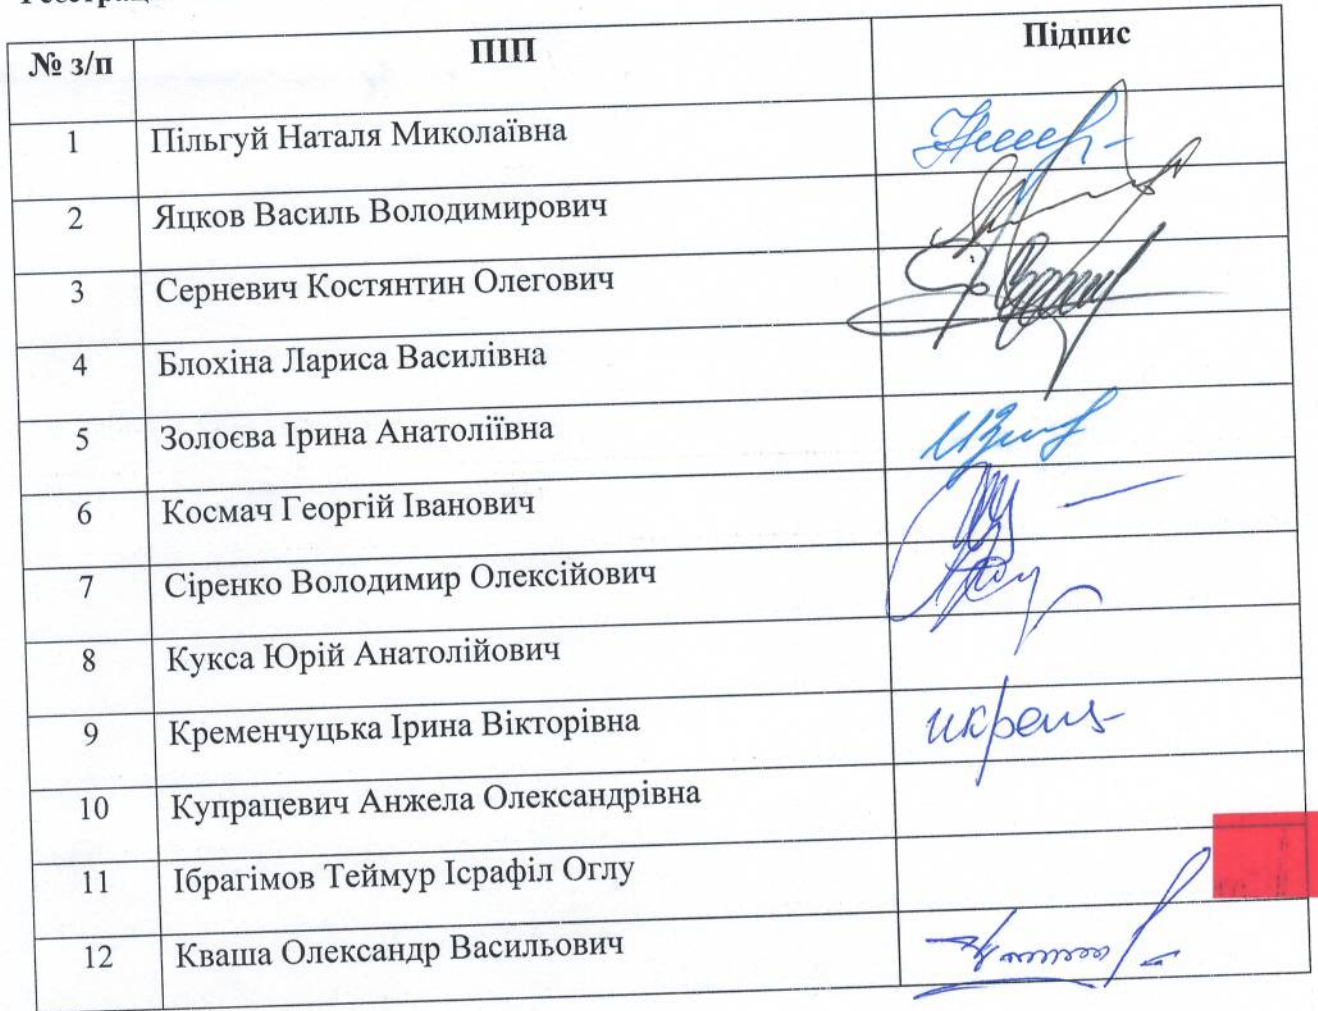 № з/п ПІП Підпис
1 Пільгуй Наталя Миколаївна
2 Яцков Василь Володимирович
3 Серневич Костянтин Олегович
4 Блохіна Лариса Василівна
5 Золоєва Ірина Анатоліївна
6 Космач Георгій Іванович
7 Сіренко Володимир Олексійович
8 Кукса Юрій Анатолійович
9 Кременчуцька Ірина Вікторівна
10 Купрацевич Анжела Олександрівна
11 Ібрагімов Теймур Ісрафіл Оглу
12 Кваша Олександр Васильович